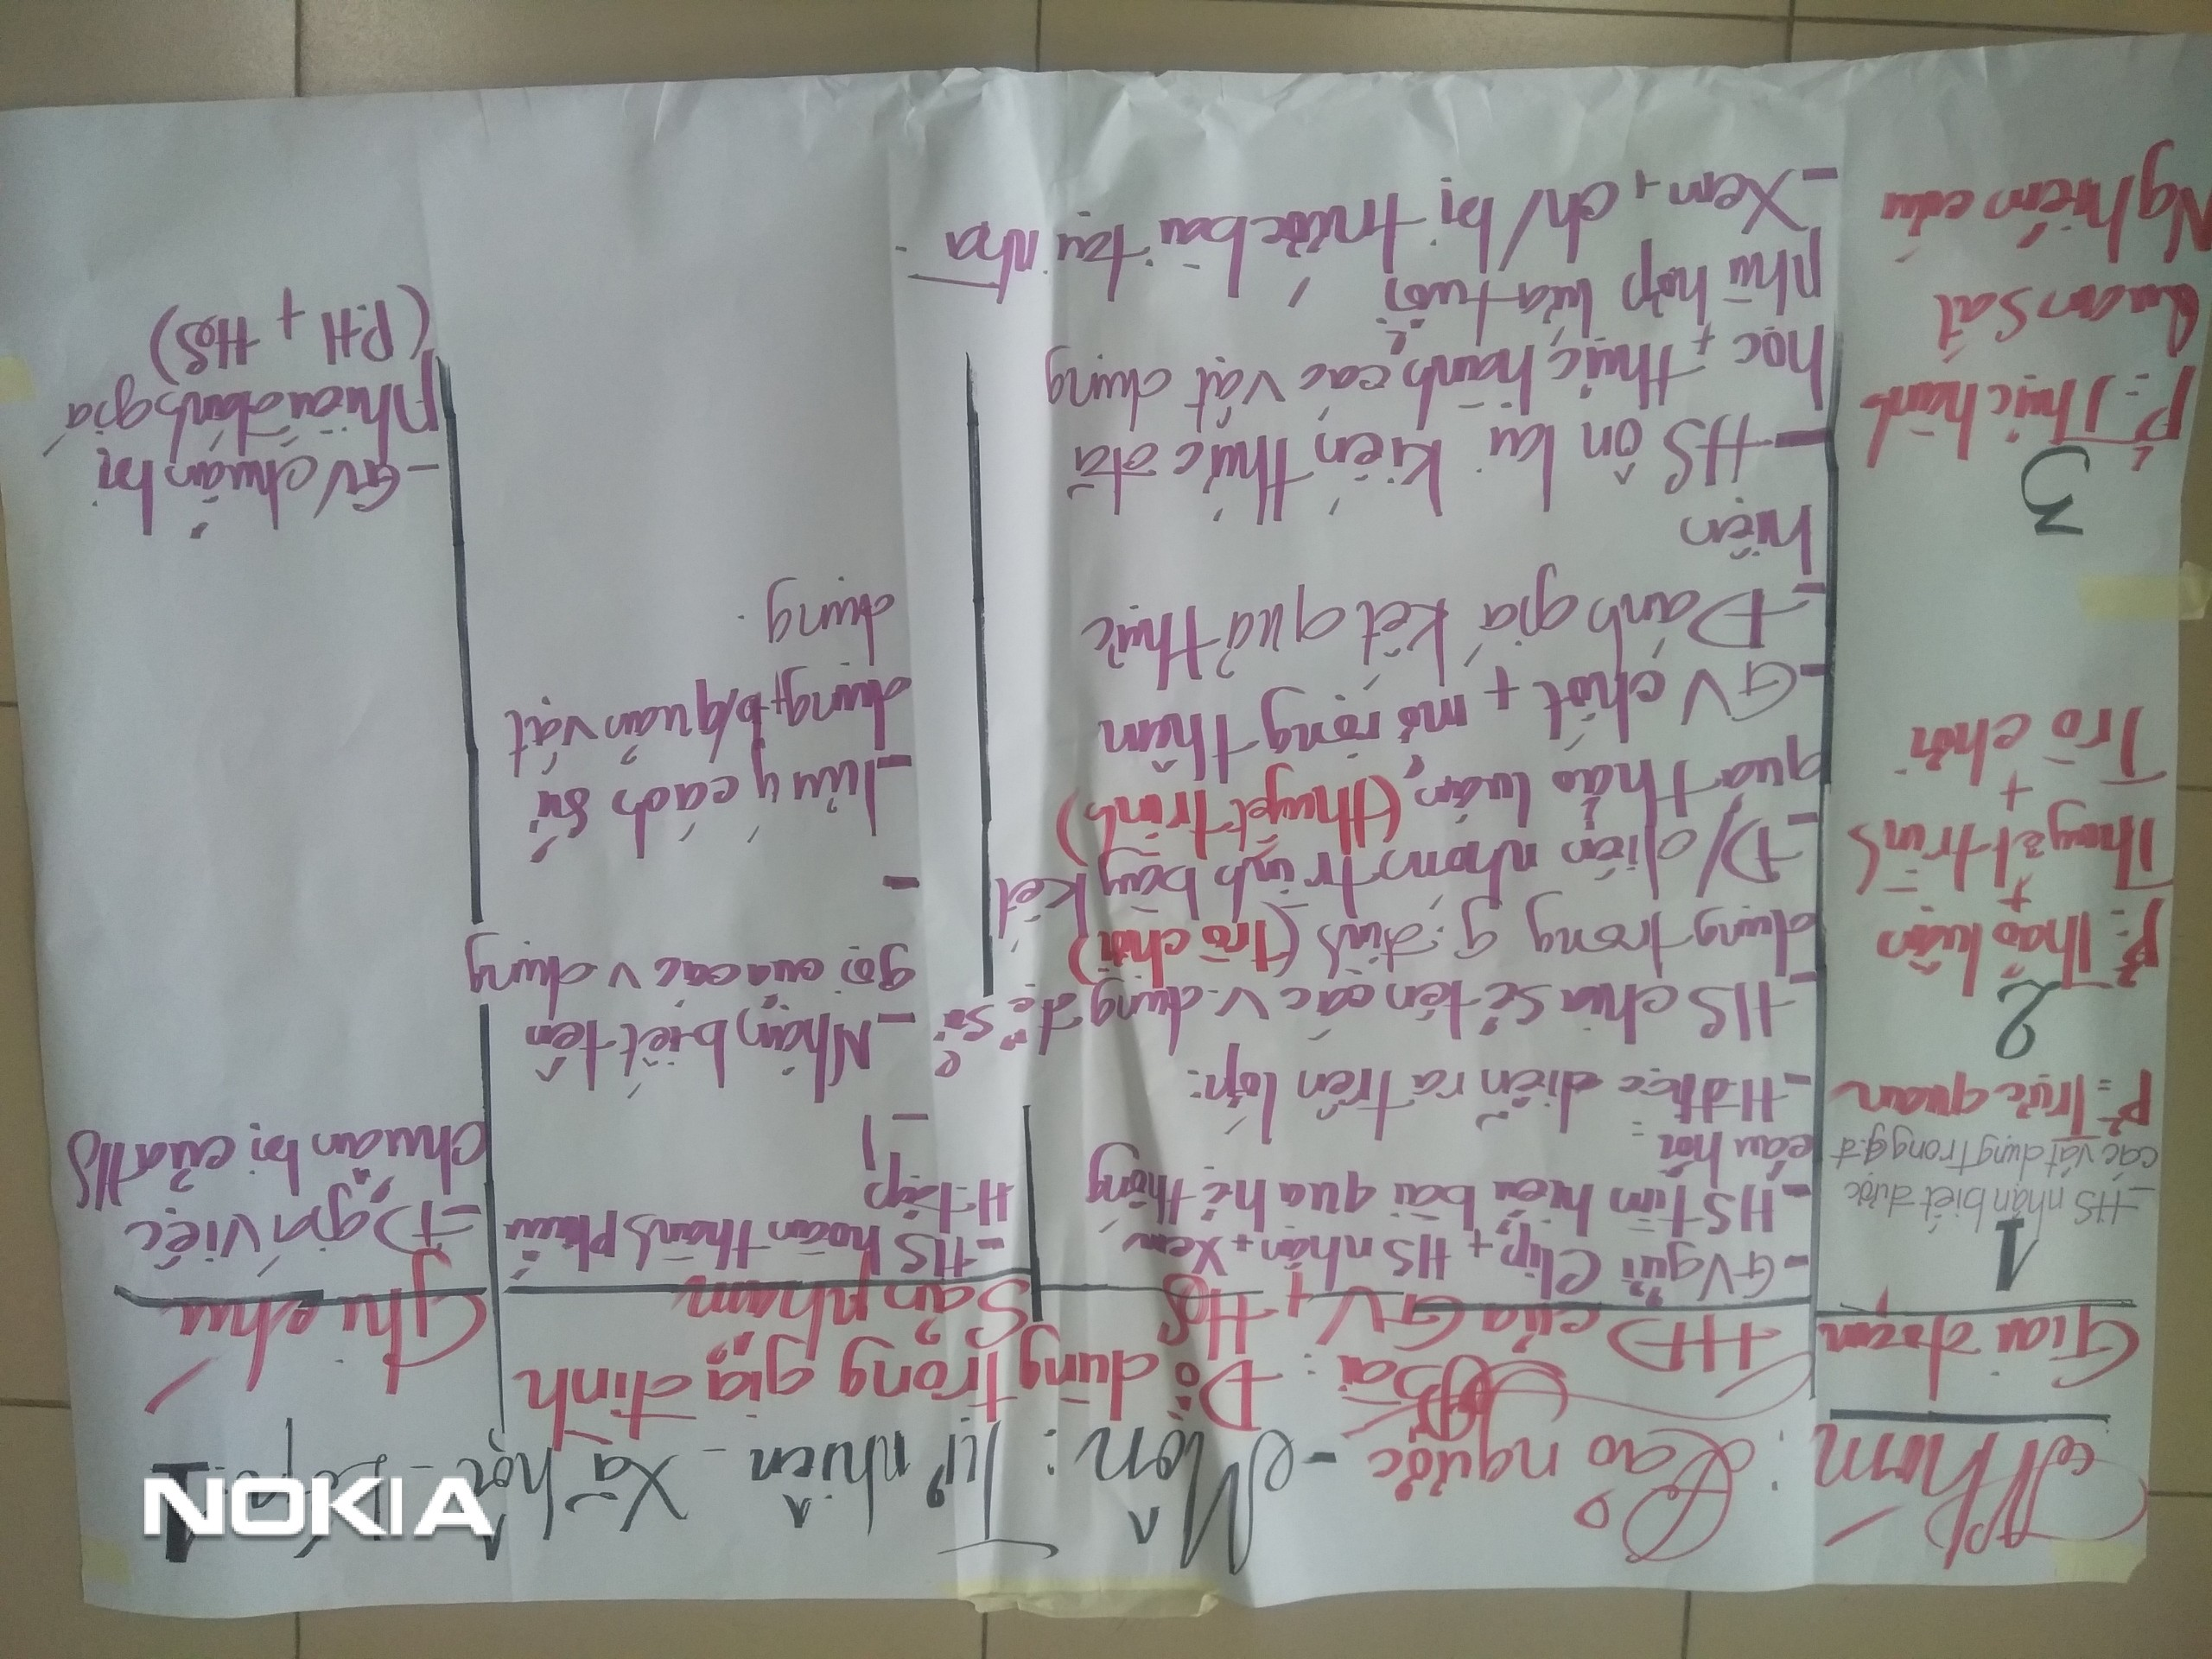 Nhóm: Đảo ngược - Môn: Tự nhiên - Xã hội - Lớp: 1
Bài: Đồ dùng trong gia đình
Giai đoạn
HĐ của GV + HS
Sản phẩm
Ghi chú
1
-HS nhận biết được
các vật dụng trong g.đ
P²: Trực quan
-GV gửi Clip + HS nhận + xem
-HS tìm hiểu bài qua hệ thống
câu hỏi
-HS hoàn thành phiếu
H.tập
-Đ giá việc
chuẩn bị của HS
2
P²: Thảo luận
+
Thuyết trình
+
Trò chơi
-H đ học diễn ra trên lớp:
-HS chia sẻ tên các v.dụng để sử
dụng trong g.đình (trò chơi)
-Đ/diện nhóm trình bày kết
quả thảo luận (thuyết trình)
-GV chốt + mở rộng thêm
-Đánh giá kết quả thực
hiện
-Nhận biết tên
gọi của các v dụng
-
-lưu ý cách sử
dụng + b/quản vật
dụng.
3
P²: Thực hành
Quan sát
Nghiên cứu
-HS ôn lại kiến thức đã
học + thực hành các vật dụng
phù hợp lứa tuổi
-Xem + ch/bị trước bài tại nhà.
-GV chuẩn bị
phiếu đánh giá
(PH + HS)
NOKIA